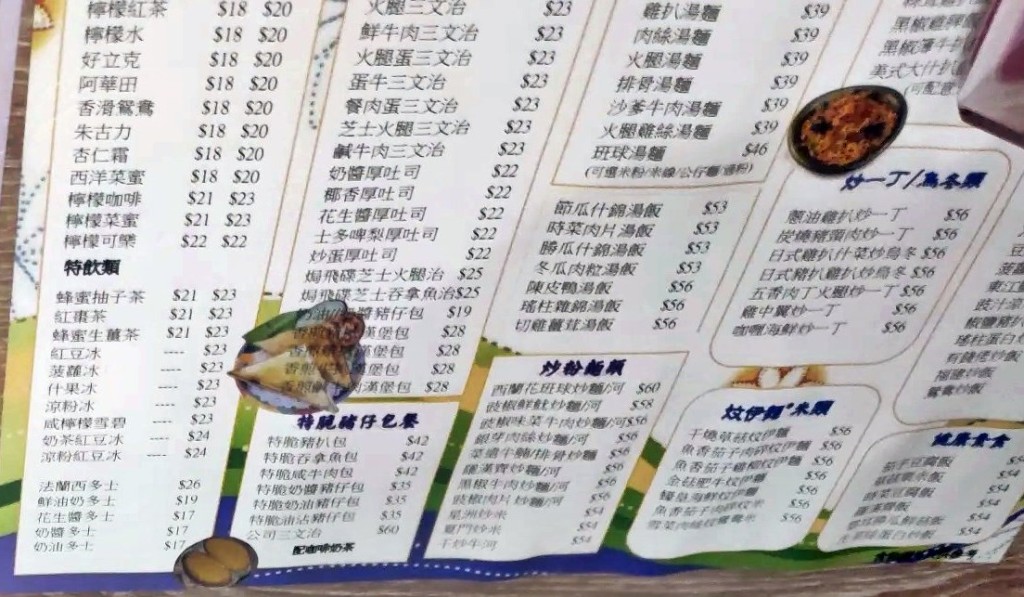 檸檬紅茶 $18 $20
檸檬水 $18 $20
好立克 $18 $20
阿華田 $18 $20
香滑鴛鴦 $18 $20
朱古力 $18 $20
杏仁霜 $18 $20
西洋菜蜜 $18 $20
檸檬咖啡 $21 $23
檸檬菜蜜 $21 $23
檸檬可樂 $22 $22
特飲類
蜂蜜柚子茶 $21 $23
紅棗茶 $21 $23
蜂蜜生薑茶 $21 $23
紅豆冰 ---- $23
菠蘿冰 ---- $23
什果冰 ---- $23
涼粉冰 ---- $23
咸檸檬雪碧 ---- $23
奶茶紅豆冰 ---- $24
涼粉紅豆冰 ---- $24
法蘭西多士 $26
鮮油奶多士 $19
花生醬多士 $17
奶醬多士 $17
奶油多士 $17
火腿三文治 $23
鮮牛肉三文治 $23
火腿蛋三文治 $23
蛋牛三文治 $23
餐肉蛋三文治 $23
芝士火腿三文治 $23
鹹牛肉三文治 $23
奶醬厚吐司 $22
椰香厚吐司 $22
花生醬厚吐司 $22
士多啤梨厚吐司 $22
炒蛋厚吐司 $22
焗飛碟芝士火腿治 $25
焗飛碟芝士吞拿魚治 $25
醬豬仔包 $19
漢堡包 $28
漢堡包 $28
漢堡包 $28
特脆豬仔包餐
特脆豬扒包 $42
特脆吞拿魚包 $42
特脆咸牛肉包 $42
特脆奶醬豬仔包 $35
特脆奶油豬仔包 $35
特脆油占豬仔包 $35
公司三文治 $60
配咖啡奶茶
雞扒湯麵 $39
肉絲湯麵 $39
火腿湯麵 $39
排骨湯麵 $39
沙爹牛肉湯麵 $39
火腿雞絲湯麵 $39
班球湯麵 $46
(可選米粉/米線/公仔麵/通粉)
節瓜什錦湯飯 $53
時菜肉片湯飯 $53
勝瓜什錦湯飯 $53
冬瓜肉粒湯飯 $53
陳皮鴨湯飯 $56
瑤柱雜錦湯飯 $56
切雞薑茸湯飯 $56
炒粉麵類
西蘭花班球炒麵/河 $60
豉椒鮮魷炒麵/河 $58
豉椒味菜牛肉炒麵/河 $56
銀芽肉絲炒麵/河 $56
菜遠牛腩/排骨炒麵 $56
羅漢齋炒麵/河 $56
黑椒牛肉炒麵/河 $56
豉椒肉片炒麵/河 $56
星洲炒米 $54
廈門炒米 $54
干炒牛河 $54
黑椒雞
黑椒薄牛扒
美式大什扒
(可配意
炒一丁/烏冬類
蔥油雞扒炒一丁 $56
炭燒豬頸肉炒一丁 $56
日式雞扒什菜炒烏冬 $56
日式豬扒雞扒炒烏冬 $56
五香肉丁火腿炒一丁 $56
雞中翼炒一丁 $56
咖喱海鮮炒一丁 $56
炆伊麵·米類
干燒草菇炆伊麵 $56
魚香茄子肉碎炆伊麵 $56
魚香茄子雞柳炆伊麵 $56
金菇肥牛炆伊麵 $56
海鮮炆伊麵 $56
魚香茄子肉碎炆米 $56
雪菜肉絲炆鴛鴦米 $56
東江
豉汁
椒鹽豬扒
瑤柱蛋白炒
有錢佬炒飯
福建炒飯
鴛鴦炒飯
健康素食
茄子豆腐飯
時菜豆腐飯 $54
羅漢齋飯 $54
勝瓜鮮菇飯 $54
蛋白炒飯 $54